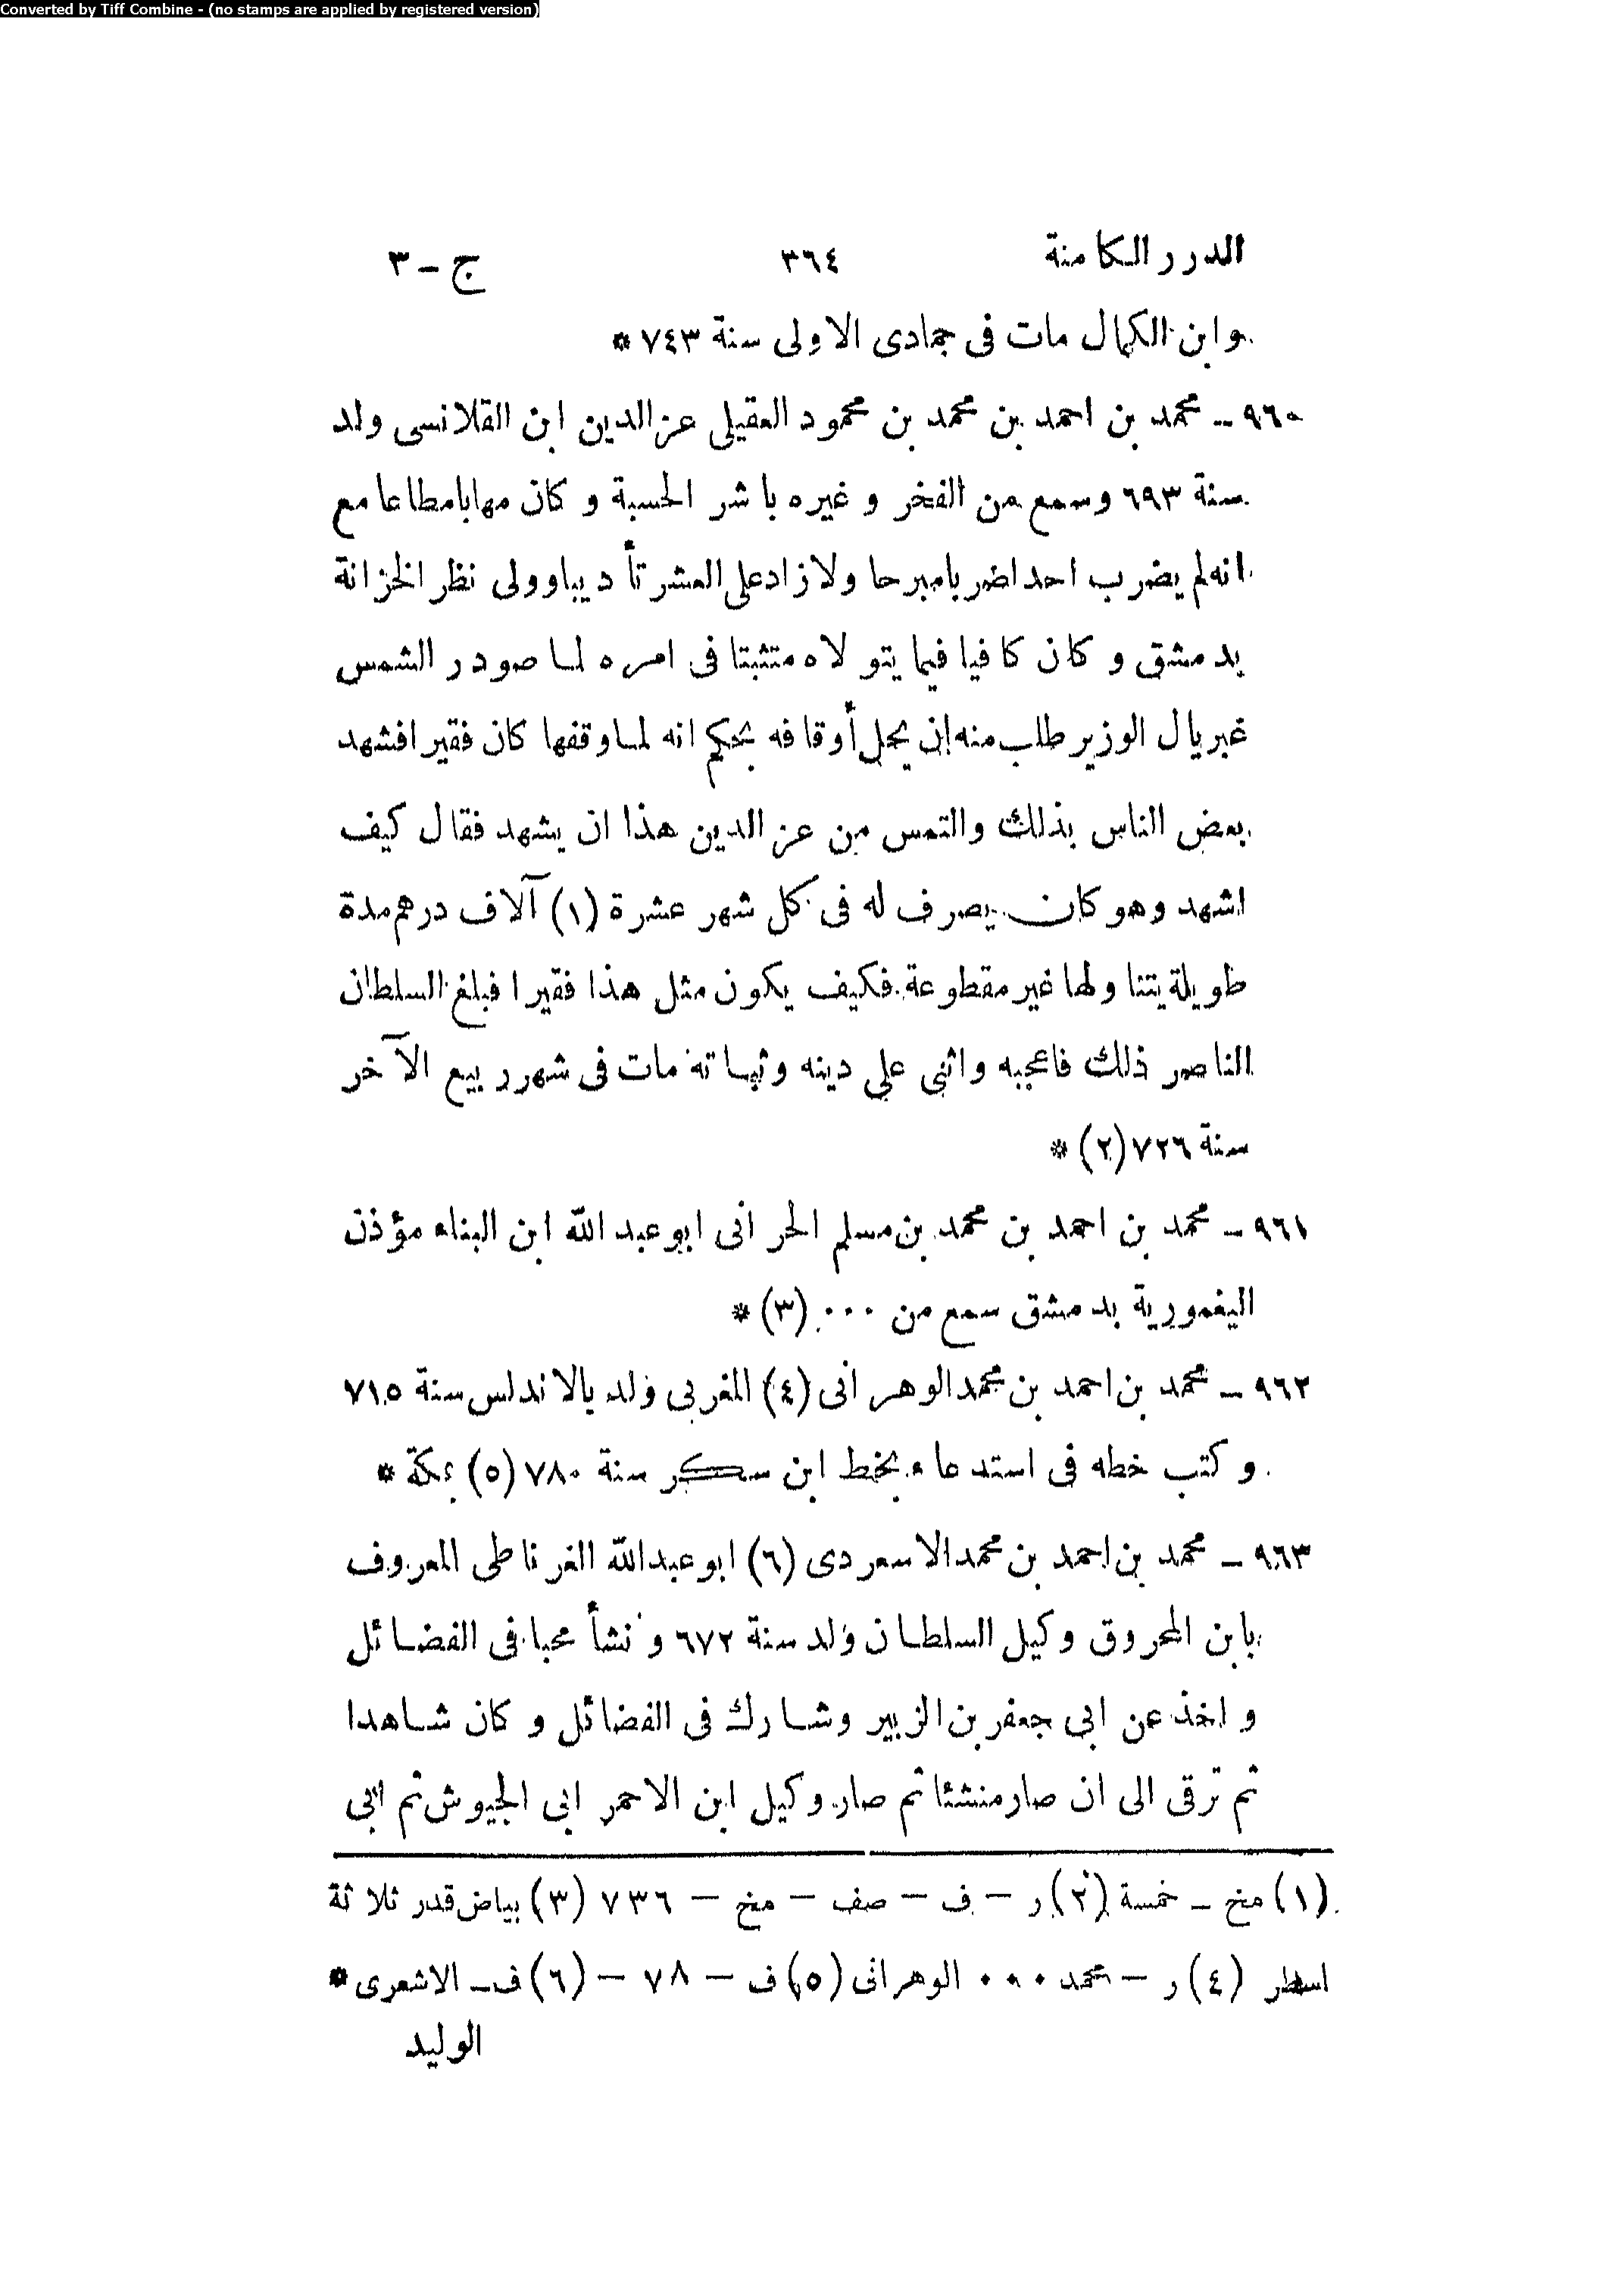 Converted by Tiff Combine - (no stamps are applied by registered version)
الدرر الكامنة ٣٦٤ ج - ٣
وابن الكمال مات فى جمادى الاولى سنة ٧٤٣ *
٩٦٠ - محمد بن احمد بن محمد بن محمود العقيلى عزالدين ابن القلانسى ولد
سنة ٦٩٣ وسمع من الفخر وغيره باشر الحسبة وكان مهابا مطاعا مع
انه لم يضرب احدا ضربا مبرحا ولا زاد على العشر تأديبا وولى نظر الخزانة
بدمشق وكان كافيا فيما يتولاه متثبتا فى امره لما صودر الشمس
غبريال الوزير طلب منه ان يحل أوقافه بحكم انه لما وقفها كان فقيرا فشهد
بعض الناس بذلك والتمس من عز الدين هذا ان يشهد فقال كيف
اشهد وهو كان يصرف له فى كل شهر عشرة (١) آلاف درهم مدة
طويلة يتناولها غير مقطوعة فكيف يكون مثل هذا فقيرا فبلغ السلطان
الناصر ذلك فاعجبه واثنى على دينه وثباته مات فى شهر ربيع الآخر
سنة ٧٢٦ (٢) *
٩٦١ - محمد بن احمد بن محمد بن مسلم الحرانى ابو عبد الله ابن البناء مؤذن
اليغمورية بدمشق سمع من ... (٣) *
٩٦٢ - محمد بن احمد بن محمد الوهرانى (٤) المغربى ولد بالاندلس سنة ٧١٥
وكتب خطه فى استدعاء بخط ابن سكر سنة ٧٨٠ (٥) بمكة *
٩٦٣ - محمد بن احمد بن محمد الاسعردى (٦) ابو عبدالله الغرناطى المعروف
بابن المحروق وكيل السلطان ولد سنة ٦٧٢ ونشأ محبا فى الفضائل
واخذ عن ابى جعفر بن الزبير وشارك فى الفضائل وكان شاهدا
ثم ترقى الى ان صار منشئا ثم صار وكيل ابن الاحمر ابى الجيوش ثم ابى
(١) منح - خمسة (٢) ر - ف - صف - منح - ٧٣٦ (٣) بياض قدر ثلاثة
اسطر (٤) ر - محمد ... الوهرانى (٥) ف - ٧٨ - (٦) ف - الاشعرى *
الوليد